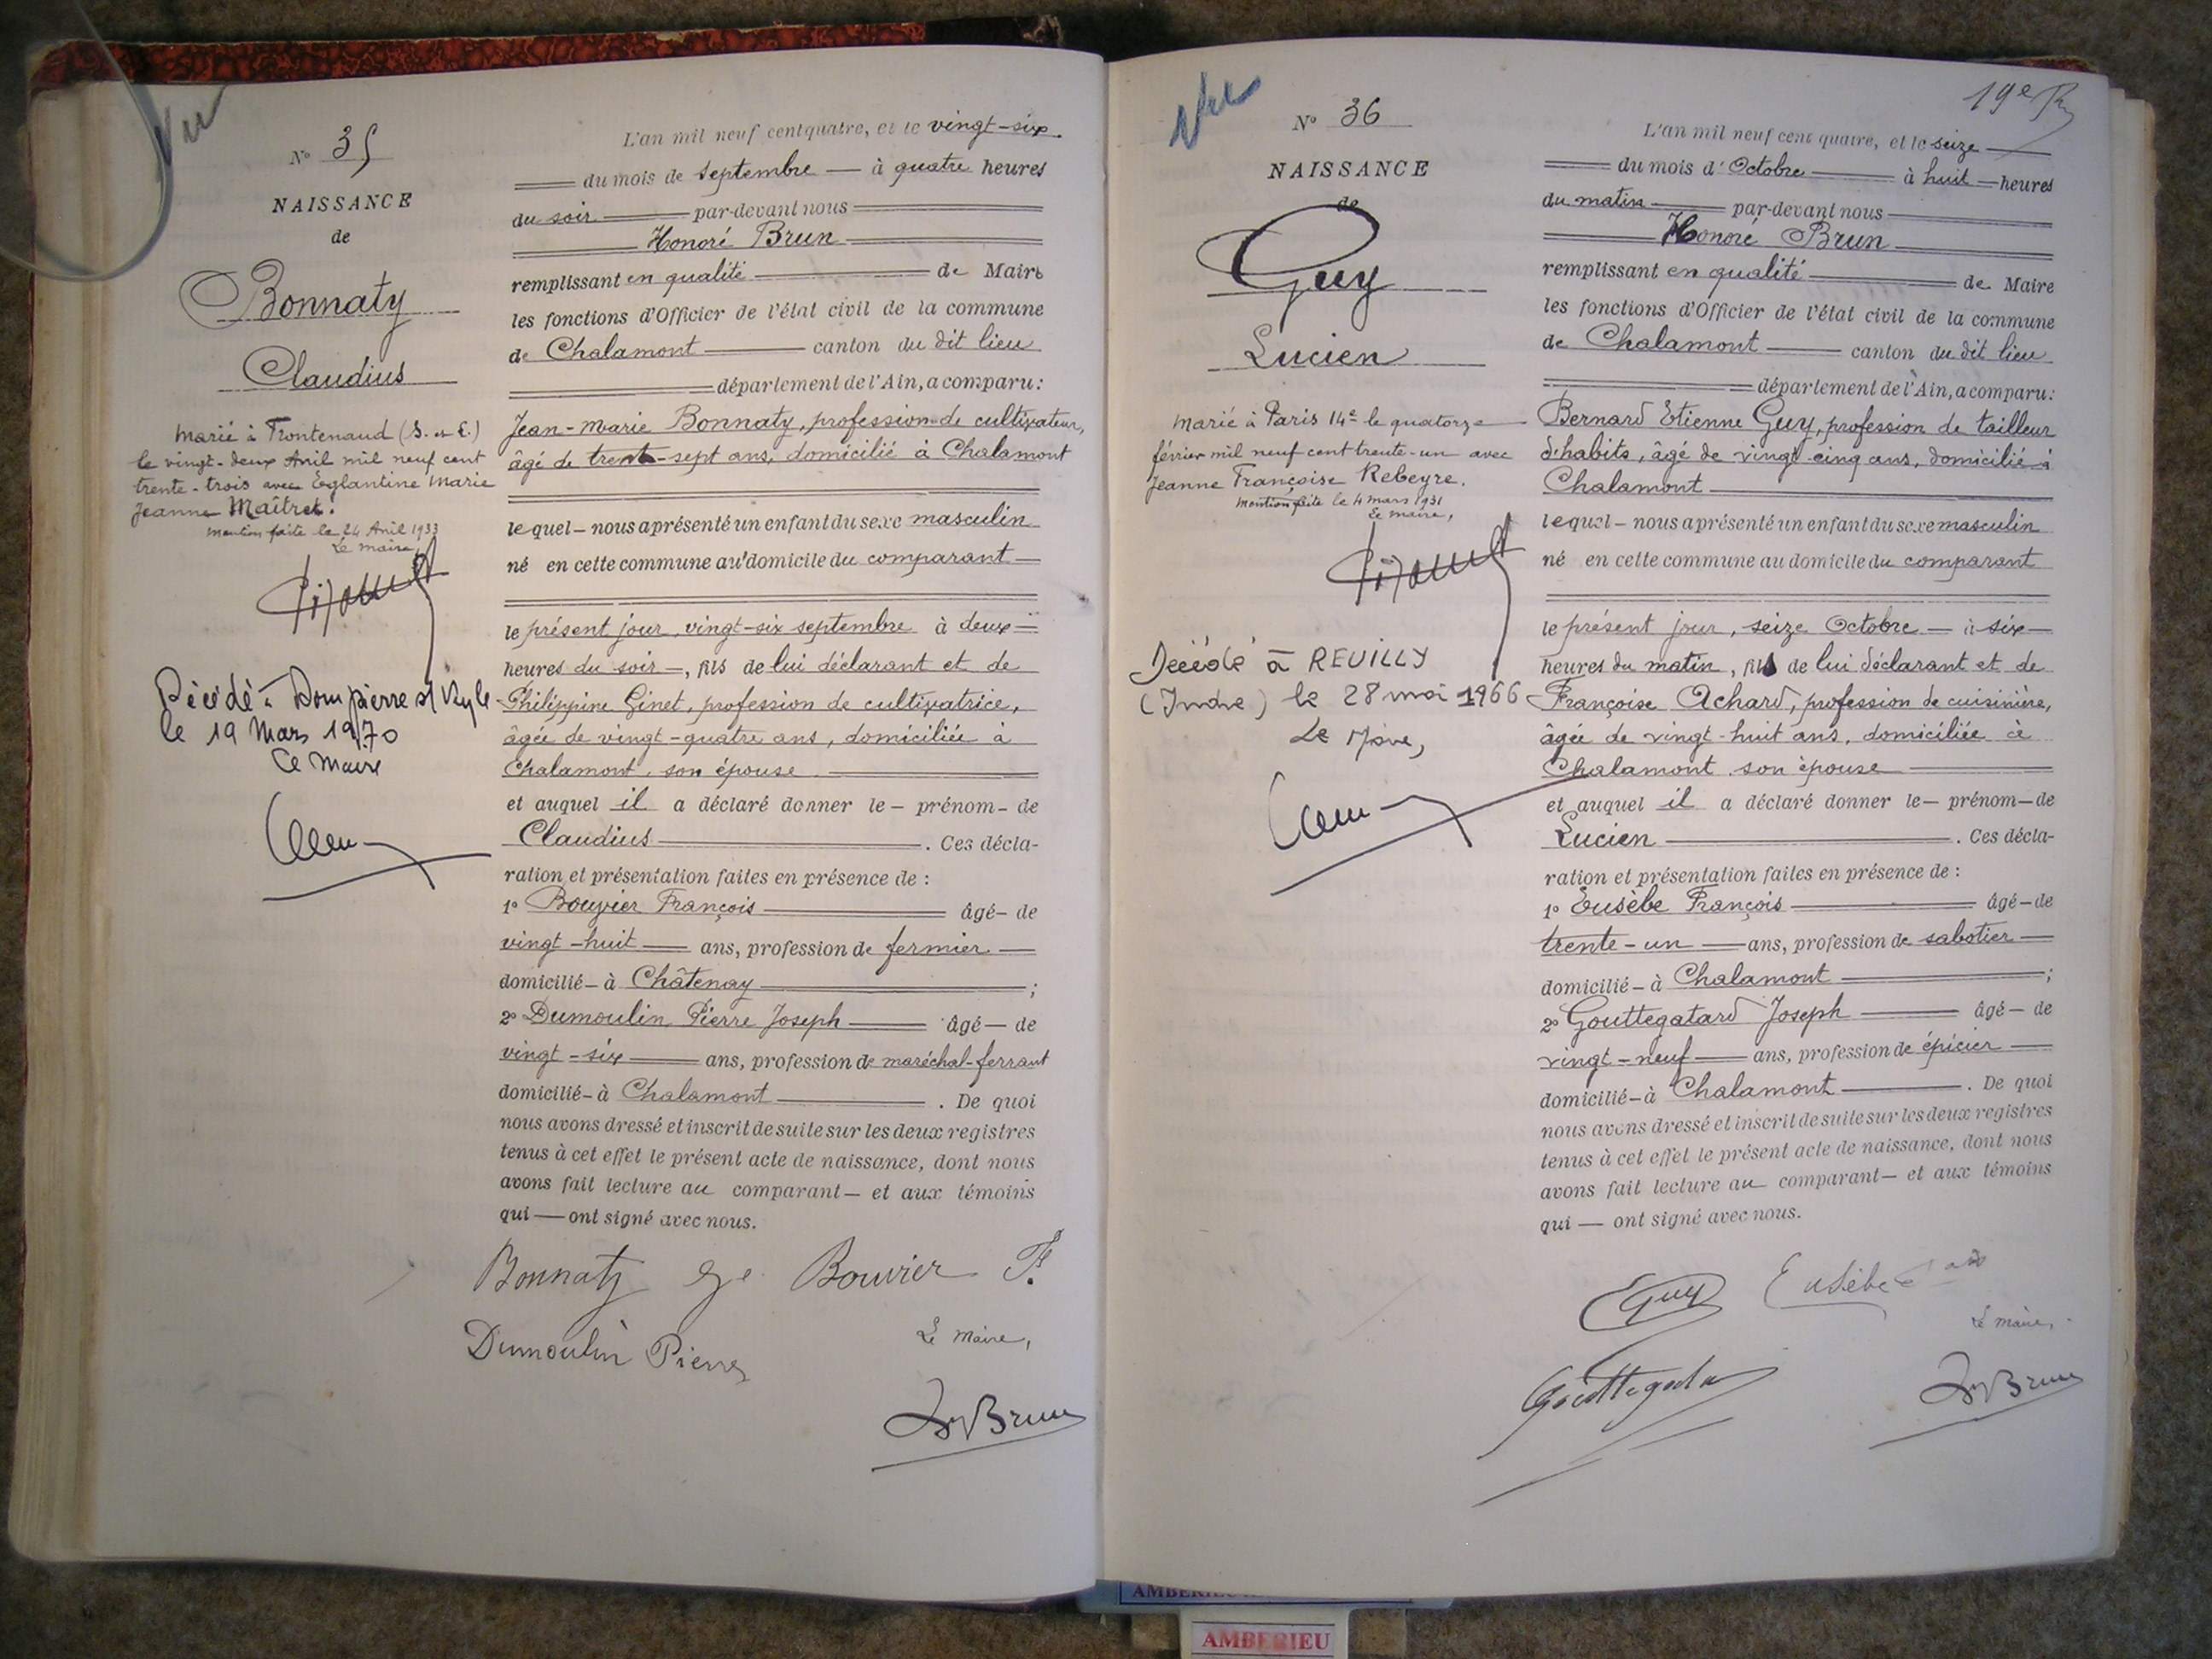 Vu
N° 35
NAISSANCE
de
Bonnaty
Claudius
Marié à Frontenaud (S. et L.)
le vingt-deux Avril mil neuf cent
trente-trois avec Eglantine Marie
Jeanne Maîtret.
Mention faite le 24 Avril 1933
Le maire,
Décédé à Dompierre s/ Veyle
le 19 Mars 1970
Le Maire
L'an mil neuf cent quatre, et le vingt-six
du mois de septembre — à quatre heures
du soir par-devant nous
Honoré Brun
remplissant en qualité de Maire
les fonctions d'Officier de l'état civil de la commune
de Chalamont canton du dit lieu
département de l'Ain, a comparu :
Jean-Marie Bonnaty, profession de cultivateur,
âgé de trente-sept ans, domicilié à Chalamont
lequel – nous a présenté un enfant du sexe masculin
né en cette commune au domicile du comparant
le présent jour, vingt-six septembre à deux
heures du soir —, fils de lui déclarant et de
Philippine Ginet, profession de cultivatrice,
âgée de vingt-quatre ans, domiciliée à
Chalamont, son épouse
et auquel il a déclaré donner le – prénom – de
Claudius . Ces décla-
ration et présentation faites en présence de :
1° Bouvier François âgé – de
vingt-huit ans, profession de fermier
domicilié – à Châtenay ;
2° Dumoulin Pierre Joseph âgé — de
vingt-six ans, profession de maréchal-ferrant
domicilié – à Chalamont . De quoi
nous avons dressé et inscrit de suite sur les deux registres
tenus à cet effet le présent acte de naissance, dont nous
avons fait lecture au comparant — et aux témoins
qui — ont signé avec nous.
Bonnaty Bouvier F.
Dumoulin Pierre
Le Maire,
Brun
Vu
19e
N° 36
NAISSANCE
de
Guy
Lucien
Marié à Paris 14e le quatorze
février mil neuf cent trente-un avec
Jeanne Françoise Rebeyre.
Mention faite le 4 mars 1931
Le maire,
Décédé à REUILLY
(Indre) le 28 mai 1966
Le Maire,
L'an mil neuf cent quatre, et le seize
du mois d'Octobre à huit — heures
du matin par-devant nous
Honoré Brun
remplissant en qualité de Maire
les fonctions d'Officier de l'état civil de la commune
de Chalamont canton du dit lieu
département de l'Ain, a comparu :
Bernard Etienne Guy, profession de tailleur
d'habits, âgé de vingt-cinq ans, domicilié à
Chalamont
lequel – nous a présenté un enfant du sexe masculin
né en cette commune au domicile du comparant
le présent jour, seize Octobre — à six —
heures du matin, fils de lui déclarant et de
Françoise Achard, profession de cuisinière,
âgée de vingt-huit ans, domiciliée à
Chalamont son épouse
et auquel il a déclaré donner le – prénom – de
Lucien . Ces décla-
ration et présentation faites en présence de :
1° Eusèbe François âgé – de
trente-un ans, profession de sabotier
domicilié – à Chalamont ;
2° Gouttegatard Joseph âgé – de
vingt-neuf ans, profession de épicier
domicilié – à Chalamont . De quoi
nous avons dressé et inscrit de suite sur les deux registres
tenus à cet effet le présent acte de naissance, dont nous
avons fait lecture au comparant — et aux témoins
qui — ont signé avec nous.
Guy Eusèbe
Le maire,
Brun
AMBERIEU